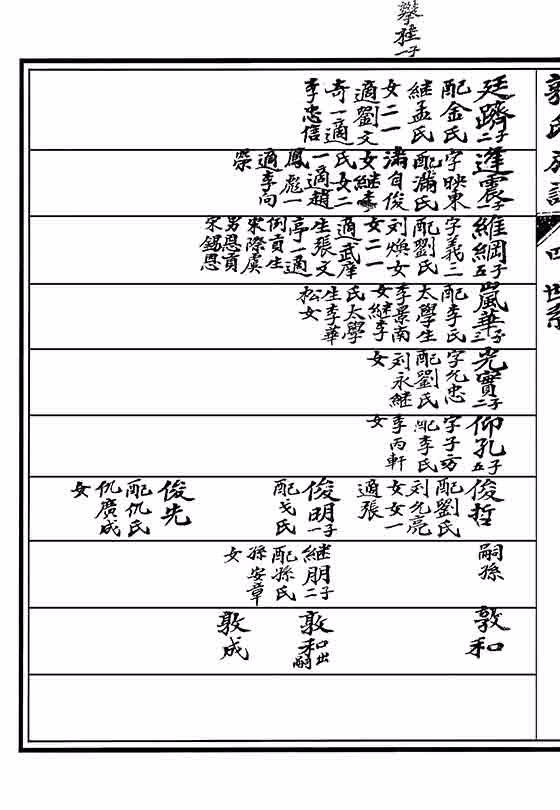 攀桂一子
四世系
廷躋二子
配金氏
継孟氏
女二一
適劉文
奇一適
李忠信
逢震一子
字映東
配滿氏
滿自俊
女継李
氏女二
一適趙
鳳彪一
適李向
榮
維綱五子
字義三
配劉氏
刘煥女
女二一
適武庠
生張文
亭一適
例貢生
宋際虞
男恩貢
宋錫恩
嵐華三子
配李氏
太學生
李景南
女継李
氏太學
生李華
松女
光實二子
字允忠
配劉氏
刘永継
女
仰孔五子
字子方
配李氏
李丙軒
女
俊哲
配劉氏
刘允亮
女女一
適張
俊明一子
配戈氏
俊先
配仇氏
仇廣成
女
嗣孫
継朋二子
配孫氏
孫安章
女
敦和
敦和出嗣
敦成